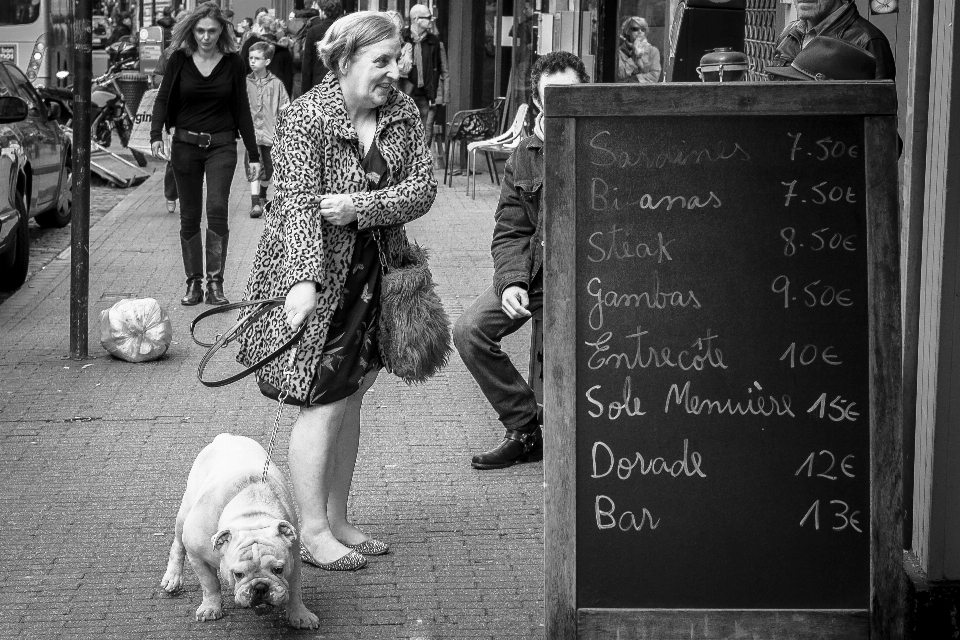 Sardines 7.50€
Bi anas 7.50€
Steak 8.50€
Gambas 9.50€
Entrecôte 10€
Sole Menuière 15€
Dorade 12€
Bar 13€